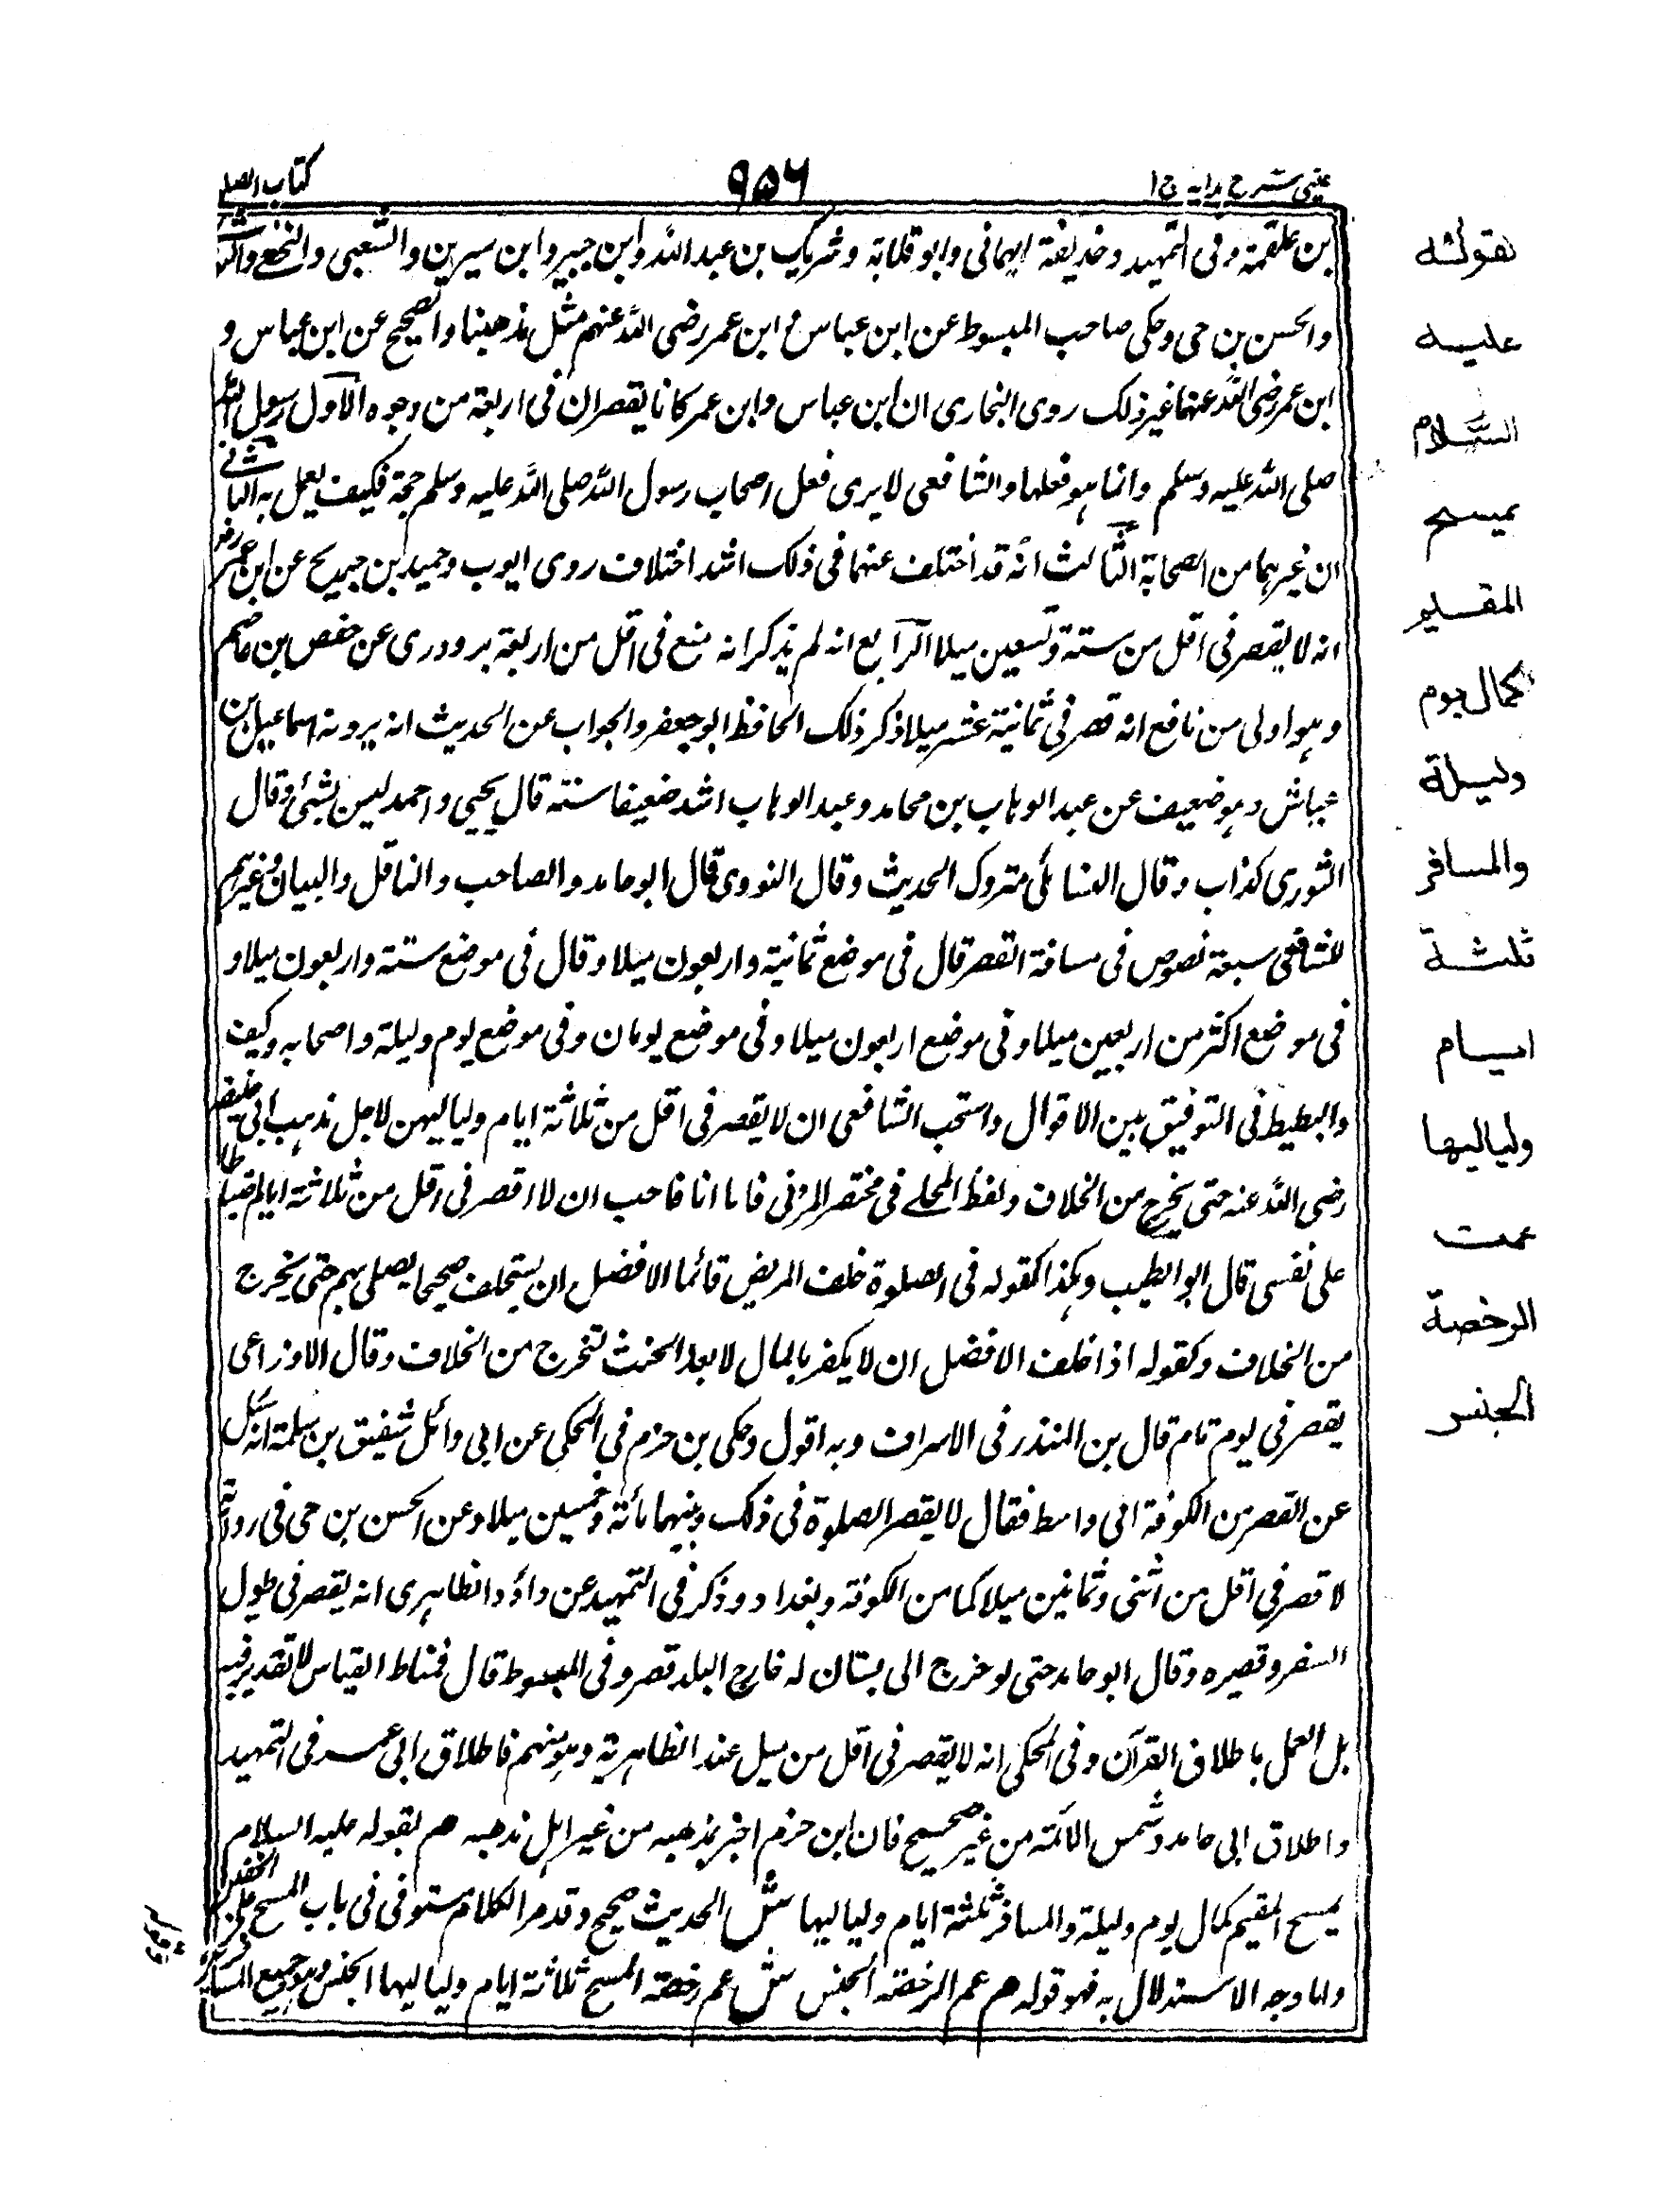 عینی شرح ہدایہ ج ۱
۹۵۶
کتاب الصلو
ابن علقمة وفى التمهيد وحذيفة اليمانى وابو قلابة وشريك بن عبد الله وابن جبير وابن سيرين والشعبى والنخعى
والحسن بن حى وحكى صاحب المبسوط عن ابن عباس وابن عمر رضى الله عنهم مثل مذهبنا والصحيح عن ابن عباس و
ابن عمر رضى الله عنهما غير ذلك روى البخارى ان ابن عباس وابن عمر كانا يقصران فى اربعة من وجوه الاول رسول الله
صلى الله عليه وسلم وانما هو فعلهما والشافعى لا يرى فعل اصحاب رسول الله صلى الله عليه وسلم حجة فكيف يعمل به الثانى
ان غيرهما من الصحابة الثالث انه قد اختلف عنهما فى ذلك اشد اختلاف روى ايوب وحميد بن جريح عن ابن عمر رض
انه لا يقصر فى اقل من ستة وتسعين ميلا الرابع انه لم يذكر انه منع فى اقل من اربعة برد وروى عن حفص بن عاصم
وهو اولى من نافع انه قصر فى ثمانية عشر ميلا ذكر ذلك الحافظ ابو جعفر والجواب عن الحديث انه يرويه اسماعيل بن
عياش وهو ضعيف عن عبد الوهاب بن مجاهد وعبد الوهاب اشد ضعيفا منه قال يحيى واحمد ليس بشئ وقال
الثورى كذاب وقال النسائى متروك الحديث وقال النووى قال ابو حامد والصاحب والناقل والبيان وغيرهم
للشافعى سبعة نصوص فى مسافة القصر قال فى موضع ثمانية واربعون ميلا وقال فى موضع ستة واربعون ميلا و
فى موضع اكثر من اربعين ميلا وفى موضع اربعون ميلا وفى موضع يومان وفى موضع يوم وليلة واصحابه وكيف
والبطيط فى التوفيق بين الاقوال واستحب الشافعى ان لا يقصر فى اقل من ثلاثة ايام ولياليهن لاجل مذهب ابى حنيفة
رضى الله عنه حتى يخرج من الخلاف ولفظ المحلے فى مختصر المزنى فاما انا فاحب ان لا اقصر فى اقل من ثلاثة ايام احتياطا
على نفسى قال ابو الطيب وهكذا كقوله فى الصلوة خلف المريض قائما الافضل ان يستخلف صحيحا يصلى بهم حتى يخرج
من الخلاف وكقوله اذا حلف الافضل ان لا يكفر بالمال لا بعد الحنث لتخرج من الخلاف وقال الاوزاعى
يقصر فى يوم تام قال بن المنذر فى الاسراف وبه اقول وحكى بن حزم فى المحكى عن ابى وائل شفيق بن سلمة انه سئل
عن القصر من الكوفة الى واسط فقال لا يقصر الصلوة فى ذلك وبينهما مائة وخمسين ميلا وعن الحسن بن حى فى رواية
لا قصر فى اقل من اثنى وثمانين ميلا كما من الكوفة وبغداد وذكر فى التمهيد عن داؤد الظاهرى انه يقصر فى طويل
السفر وقصيره وقال ابو حامد حتى لو خرج الى بستان له خارج البلد قصر وفى المبسوط قال فمناط القياس لا تقدير فيه
بل العمل باطلاق القرآن وفى المحكى انه لا يقصر فى اقل من ميل عند الظاهرية وهو منهم فاطلاق ابى عمر فى التمهيد
واطلاق ابى حامد وشمس الائمة من غير صحيح فان ابن حزم اخبر بمذهبه من غير اهل مذهبه هم لقوله عليه السلام
يمسح المقيم كمال يوم وليلة والمسافر ثلثة ايام ولياليها ش الحديث صحيح وقدمر الكلام مستوفى فى باب المسح على الخفين
واما وجه الاستدلال به فهو قوله هم عم الرخصة الجنس ش عم رخصة المسح ثلاثة ايام ولياليها الجنس وهو جميع
لقوله
عليه
السَّلام
يمسح
المقيم
كمال يوم
وليلة
والمسافر
ثلثة
ايام
ولياليها
عمت
الرخصة
الجنس